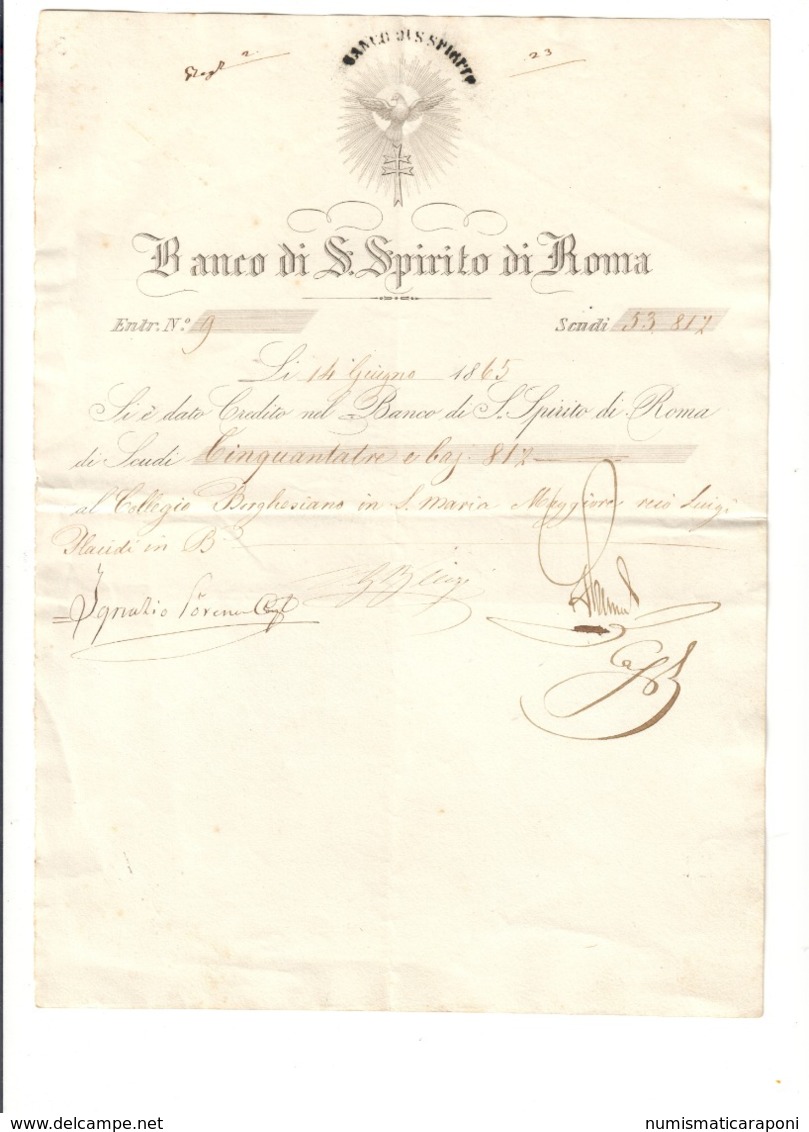 BANCO DI S SPIRITO
2.
23
Banco di S. Spirito di Roma
Entr. N.º 9 Scudi 53.81½
Li 14 Giugno 1865
Si è dato Credito nel Banco di S. Spirito di Roma
di Scudi Cinquantatre e baj. 81½
al Collegio Borghesiano in S. Maria Maggiore recò Luigi
Placidi in B
Ignazio
delcampe.net numismaticaraponi